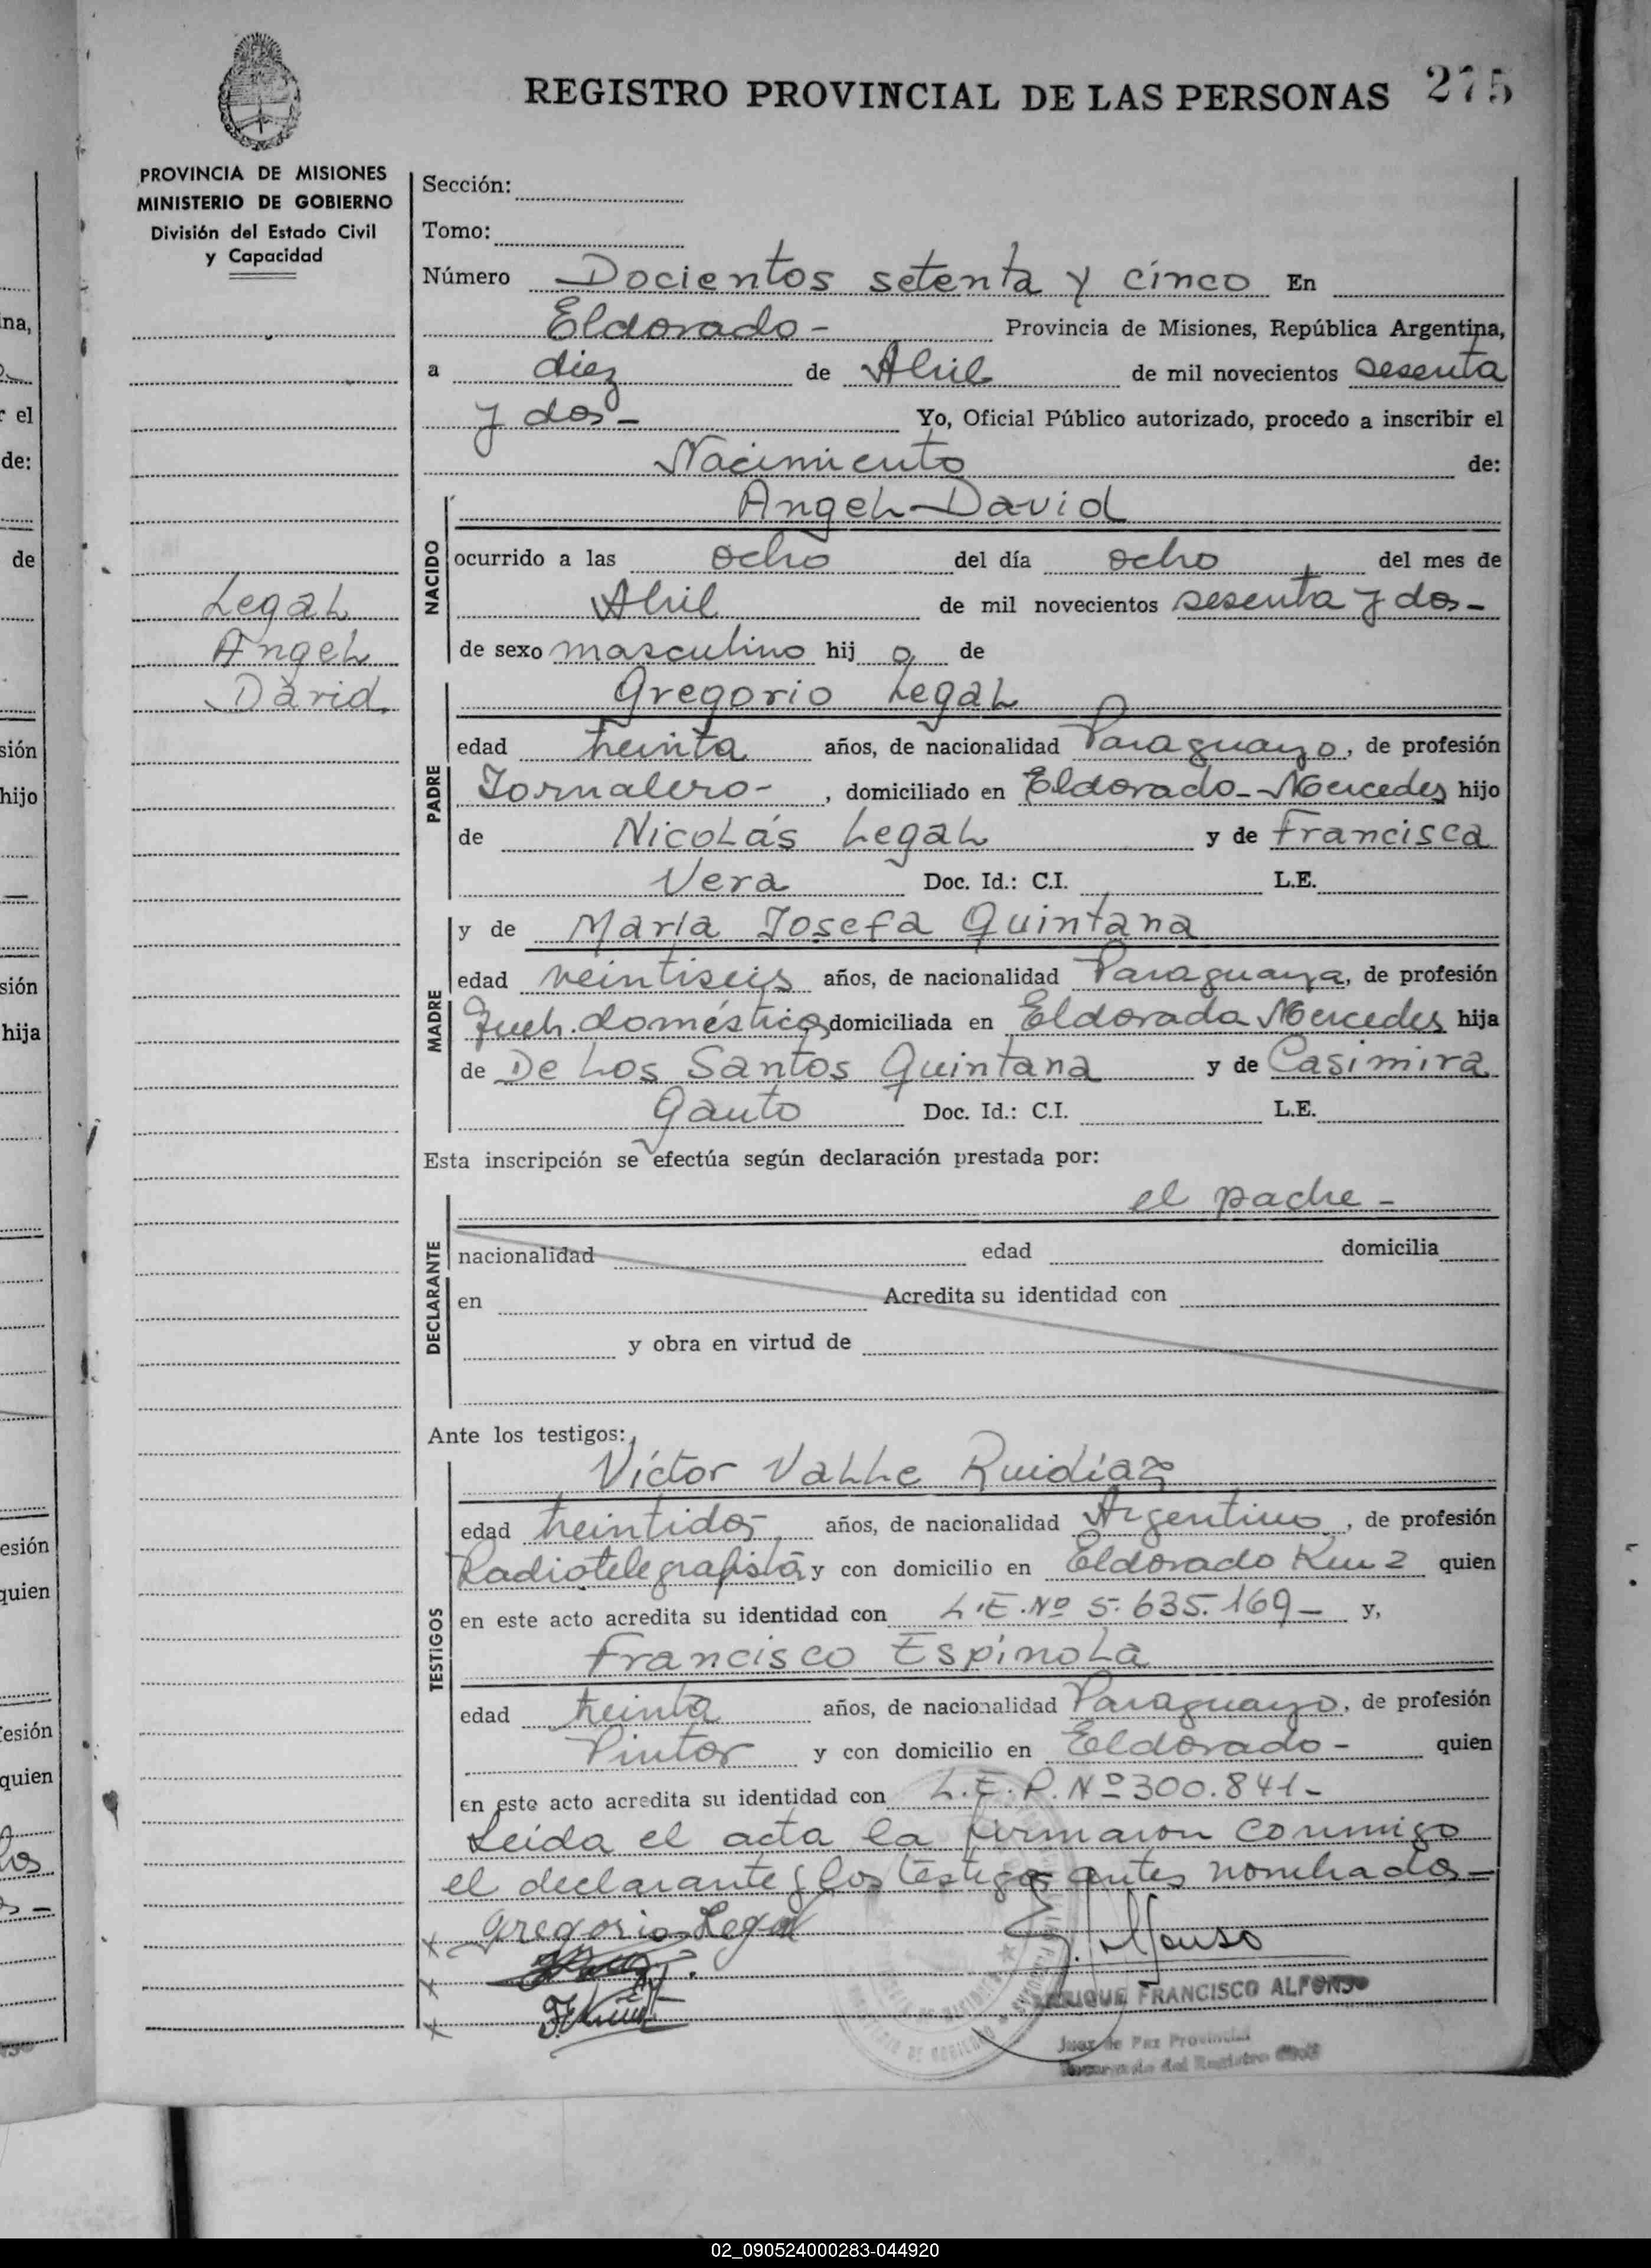 REGISTRO PROVINCIAL DE LAS PERSONAS 275
PROVINCIA DE MISIONES
MINISTERIO DE GOBIERNO
División del Estado Civil
y Capacidad
Legal
Angel
David
Sección:
Tomo:
Número Docientos setenta y cinco En
Eldorado- Provincia de Misiones, República Argentina,
a diez de Abril de mil novecientos sesenta
y dos- Yo, Oficial Público autorizado, procedo a inscribir el
Nacimiento de:
Angel David
NACIDO
ocurrido a las ocho del día ocho del mes de
Abril de mil novecientos sesenta y dos-
de sexo masculino hij o de
Gregorio Legal
PADRE
edad treinta años, de nacionalidad Paraguayo, de profesión
Jornalero- , domiciliado en Eldorado-Mercedes hijo
de Nicolás Legal y de Francisca
Vera Doc. Id.: C.I. L.E.
y de María Josefa Quintana
MADRE
edad veintiseis años, de nacionalidad Paraguaya, de profesión
doméstico, domiciliada en Eldorado Mercedes hija
de De Los Santos Quintana y de Casimira
Gauto Doc. Id.: C.I. L.E.
Esta inscripción se efectúa según declaración prestada por:
el padre-
DECLARANTE
nacionalidad edad domicilia
en Acredita su identidad con
y obra en virtud de
Ante los testigos:
Víctor Valle Ruidíaz
TESTIGOS
edad treintidos años, de nacionalidad Argentino, de profesión
Radiotelegrafista y con domicilio en Eldorado Km 2 quien
en este acto acredita su identidad con L.E. Nº 5.635.169- y,
Francisco Espínola
edad treinta años, de nacionalidad Paraguayo, de profesión
Pintor y con domicilio en Eldorado- quien
en este acto acredita su identidad con L.E.P. Nº 300.841-
Leída el acta la firmaron conmigo
el declarante y los testigos antes nombrados-
x Gregorio Legal
E. Alfonso
ENRIQUE FRANCISCO ALFONSO
x
x
Juez de Paz Provincial
Encargado del Registro Civil
na,
r el
de:
de
sión
hijo
sión
hija
esión
quien
esión
quien
02_090524000283-044920